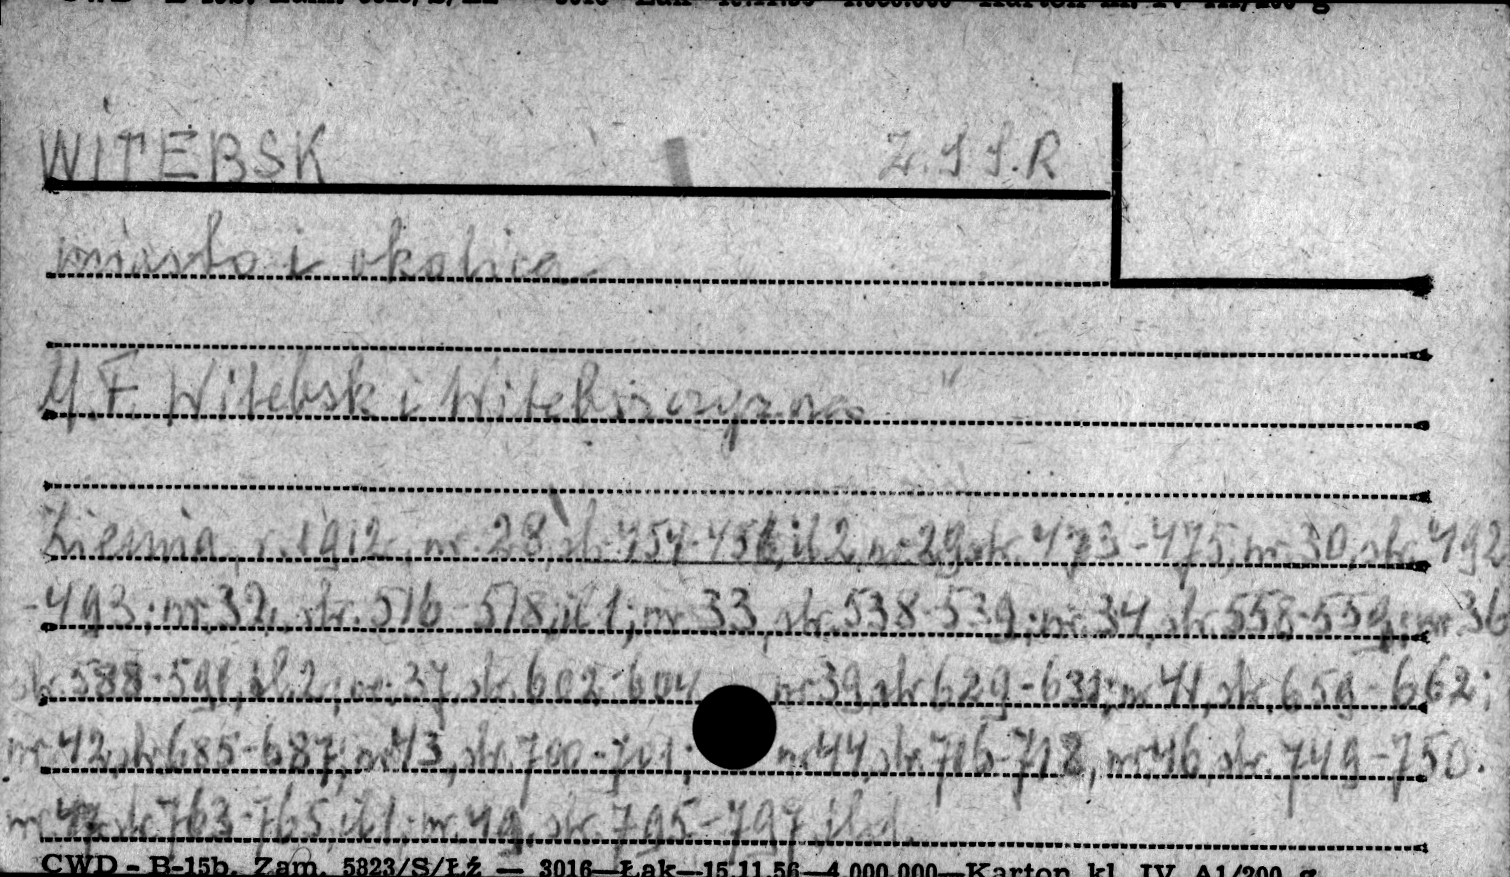 WITEBSK Z.S S.R
miasto i okolica
M.F. Witebsk i Witebszczyzna
Ziemia, r. 1912, nr. 28, str. 454-456, il 2, nr. 29 str. 473-475, nr. 30, str. 492
-493; nr. 32, str. 516-518, il 1; nr 33, str. 538-539; nr. 34, str. 558-559; nr 36
str. 588-591, il. 2; nr. 37, str. 602-604 nr 39, str 629-631; nr 41, str. 659-662;
nr. 42, str. 685-687; nr 43, str. 700-701; nr 44, str. 716-718, nr 46, str. 749-750.
nr. 47, str 763-765, il 1; nr. 49, str. 795-797, il.
CWD - B-15b. Zam. 5823/S/Łź — 3016—Łak—15.11.56—4.000.000—Karton kl. IV A1/200 g